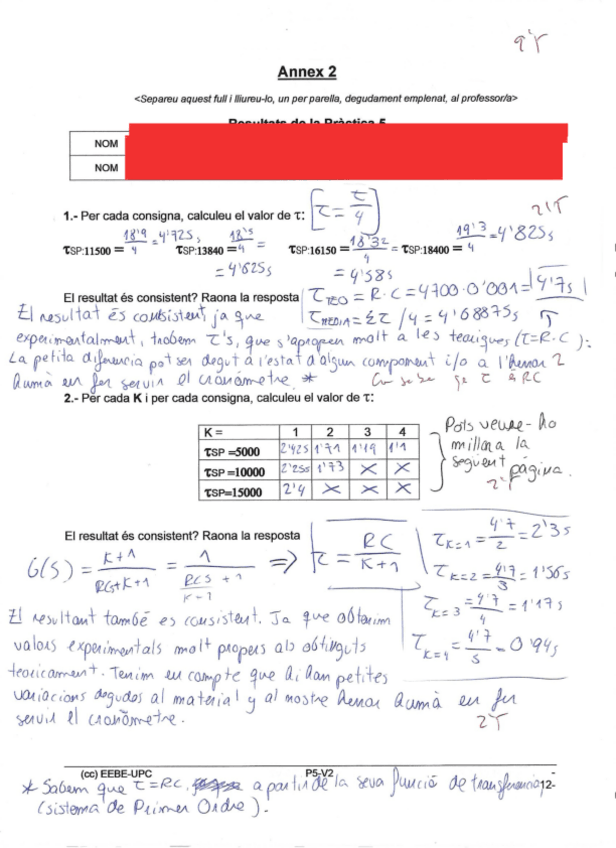 9'5
Annex 2
<Separeu aquest full i lliureu-lo, un per parella, degudament emplenat, al professor/a>
Resultats de la Pràctica 5
NOM
NOM
1.- Per cada consigna, calculeu el valor de τ: [τ = t/4]
τSP:11500 = 18'9/4 = 4'725s τSP:13840 = 18'5/4 = 4'625s τSP:16150 = 18'32/4 = 4'58s τSP:18400 = 19'3/4 = 4'825s
El resultat és consistent? Raona la resposta τTEO = R·C = 4700·0'001 = 4'7s
El resultat és consistent ja que τMEDIA = Στ/4 = 4'68875s
experimentalment, trobem τ's, que s'apropen molt a les teoriques (τ=R·C):
La petita diferencia pot ser degut a l'estat d'algun component i/o a l'herror
humà en fer servir el cronòmetre. *
2.- Per cada K i per cada consigna, calculeu el valor de τ:
K = 1 2 3 4
τSP =5000 2'425 1'71 1'19 1'1
τSP =10000 2'25s 1'73 X X
τSP=15000 2'4 X X X
Pots veure-ho
millor a la
següent
pàgina.
El resultat és consistent? Raona la resposta
G(s) = K+1/RCs+K+1 = 1/(RCs/K+1 + 1) => τ = RC/K+1
τK=1 = 4'7/2 = 2'3s
τK=2 = 4'7/3 = 1'56s
τK=3 = 4'7/4 = 1'17s
τK=4 = 4'7/5 = 0'94s
El resultant també es consistent. Ja que obtenim
valors experimentals molt propers als obtinguts
teoricament. Tenim en compte que hi han petites
variacions degudes al material y al nostre herror humà en fer
servir el cronòmetre.
(cc) EEBE-UPC P5-V2 -12-
* Sabem que τ=RC, a partir de la seva funció de transferencia,
(sistema de Primer Ordre).